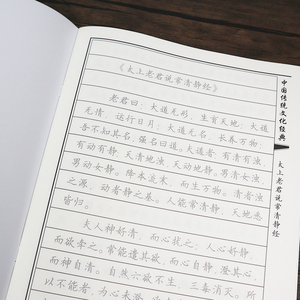 《太上老君说常清静经》
老君曰：大道无形，生育天地；大道
无情，运行日月；大道无名，长养万物；
吾不知其名，强名曰道。夫道者：有清有浊，
有动有静。天清地浊，天动地静。男清女浊，
男动女静。降本流末，而生万物。清者浊
之源，动者静之基。人能常清静，天地悉
皆归。
夫人神好清，而心扰之；人心好静，
而欲牵之。常能遣其欲，而心自静，澄其心，
而神自清。自然六欲不生，三毒消灭。所
以不能者，为心未澄，
中国传统文化经典
太上老君说常清静经